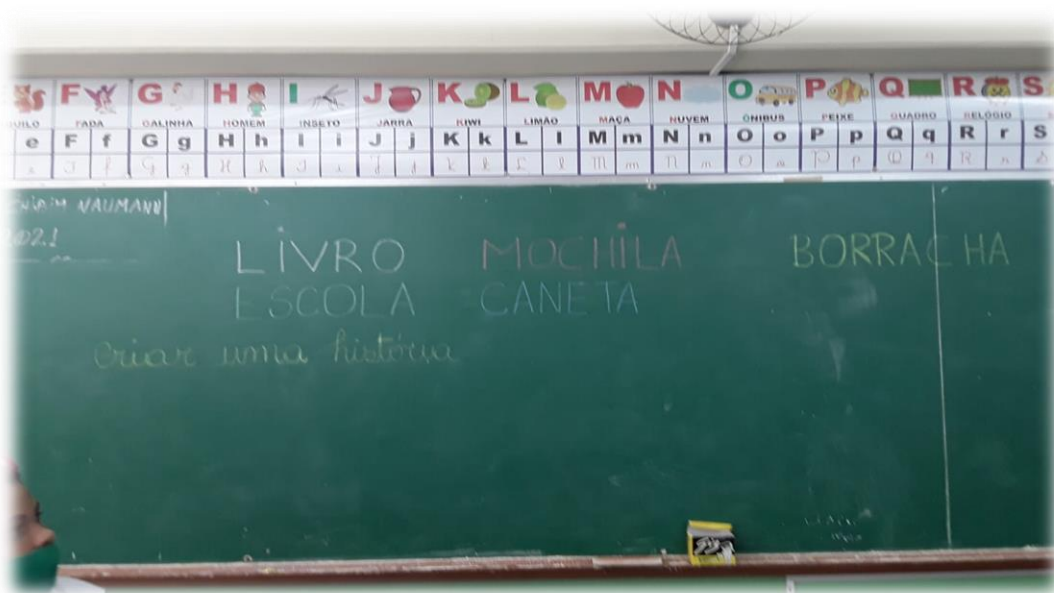 F G H I J K L M N O P Q R S
FADA GALINHA HOMEM INSETO JARRA KIWI LIMÃO MAÇA NUVEM ÔNIBUS PEIXE QUADRO RELÓGIO
e F f G g H h I i J j K k L l M m N n O o P p Q q R r S
NAUMANN
LIVRO MOCHILA BORRACHA
ESCOLA CANETA
Criar uma história